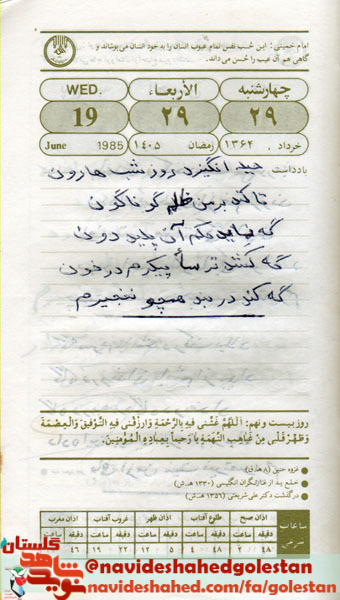 امام خمینی: این حُب نفس تمام عیوب انسان را به خود انسان می‌پوشاند و
گاهی هم آن عیب را حُسن می‌داند.
چهارشنبه الأربعاء WED.
۲۹ ۲۹ 19
خرداد ، ۱۳۶۴ رمضان ۱۴۰۵ June 1985
یادداشت
حیله انگیزد روز شب هارون
تا کند بر من ظلم گوناگون
گه
گه کند ترسا پیکرم در خون
گه کند در بند همچو نخجیرم
روز بیست و نهم: اَللّهُمَّ غَشِّنی فیهِ بِالرَّحْمَةِ وَارْزُقْنی فیهِ التَّوْفیقَ وَالْعِصْمَةَ
وَطَهِّرْ قَلْبی مِنْ غَیاهِبِ التُّهَمَةِ یا رَحیماً بِعِبادِهِ الْمُؤْمِنینَ.
غزوه حنین (۸ هـ.ق)
خلع ید از غارتگران انگلیسی (۱۳۳۰ هـ.ش)
درگذشت دکتر علی شریعتی (۱۳۵۶ هـ.ش)
ساعات شرعی
اذان صبح طلوع آفتاب اذان ظهر غروب آفتاب اذان مغرب
دقیقه ساعت دقیقه ساعت دقیقه ساعت دقیقه ساعت دقیقه
۴۸ ۲ ۴۸ ۴ ۵ ۱۲ ۲۲ ۱۹ ۴۶
نوید شاهد گلستان
@navideshahedgolestan
navideshahed.com/fa/golestan